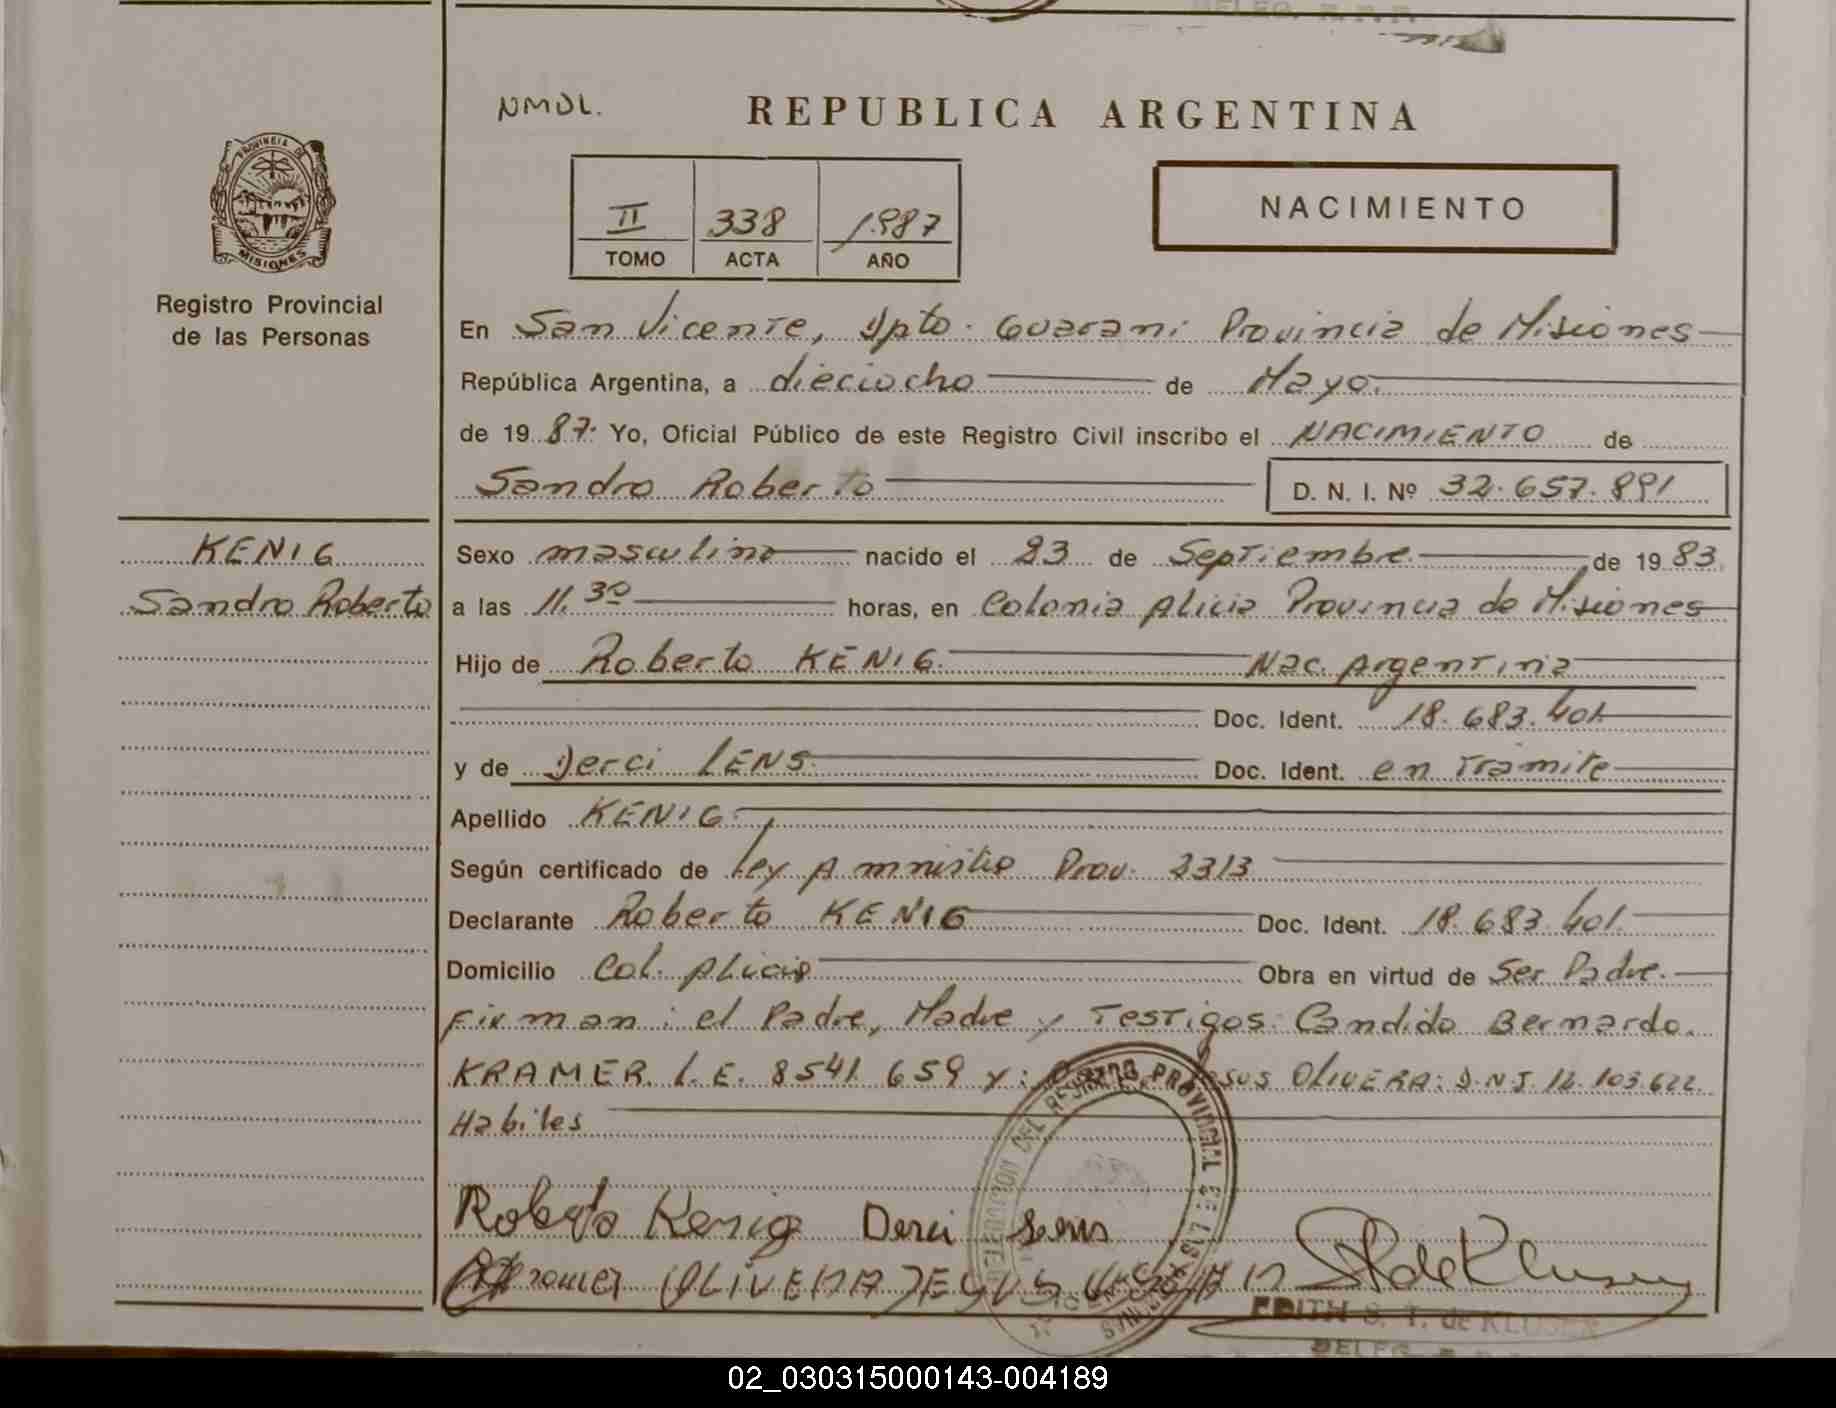 NMDL.
REPUBLICA ARGENTINA
PROVINCIA DE
MISIONES
Registro Provincial
de las Personas
II 338 1.987
TOMO ACTA AÑO
NACIMIENTO
En San Vicente, Dpto. Guarani Provincia de Misiones
República Argentina, a dieciocho de Mayo.
de 19 87. Yo, Oficial Público de este Registro Civil inscribo el NACIMIENTO de
Sandro Roberto D. N. I. Nº 32.657.891
KENIG
Sandro Roberto
Sexo masculino nacido el 23 de Septiembre de 19 83
a las 11.30 horas, en Colonia Alicia Provincia de Misiones
Hijo de Roberto KENIG. Nac. Argentina
Doc. Ident. 18.683.401
y de Derci LENS. Doc. Ident. en Tramite
Apellido KENIG.
Según certificado de Ley Amnistia Prov. 2313
Declarante Roberto KENIG Doc. Ident. 18.683.401.
Domicilio Col. Alicia Obra en virtud de Ser Padre.
Firman: el Padre, Madre y Testigos: Candido Bernardo.
KRAMER. L.E. 8541.659 y: Jesus OLIVERA: D.N.I. 12.103.622.
Habiles
Roberto Kenig Derci Lens
OLIVERA JESUS
EDITH S. T. de KLUSER
DELEG.
02_030315000143-004189